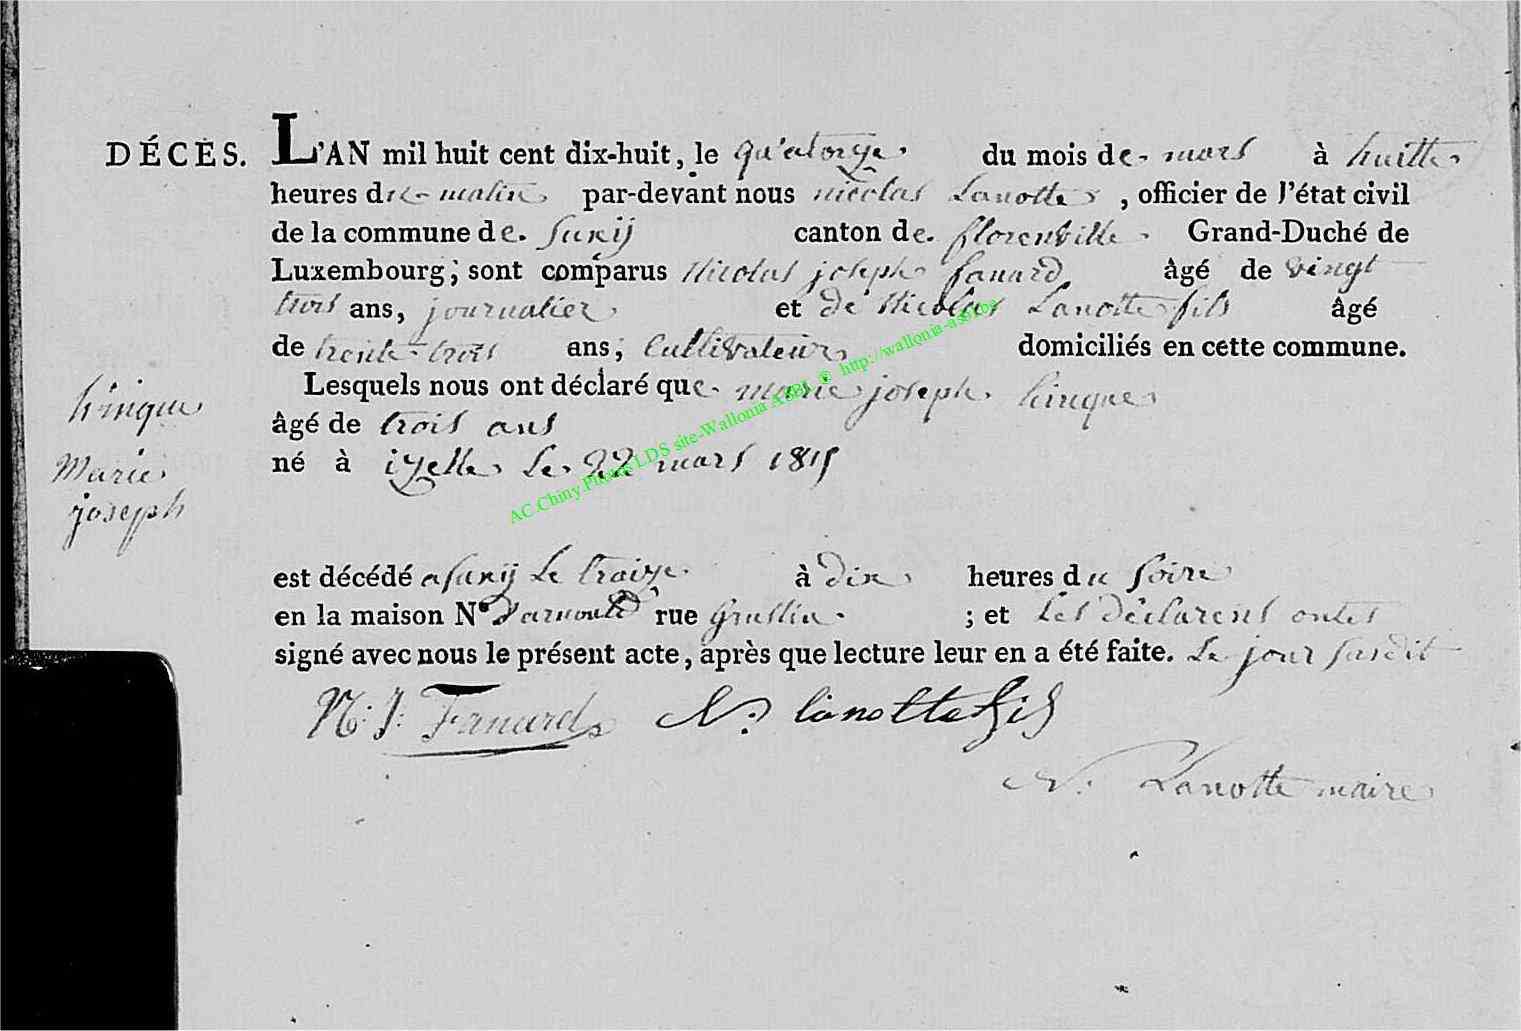 DÉCÈS. L'AN mil huit cent dix-huit, le qu'atorze du mois de mars à huitte
heures du matin par-devant nous nicolas Lanotte, officier de l'état civil
de la commune de Suxij canton de florenville Grand-Duché de
Luxembourg; sont comparus Nicolas joseph fanard âgé de vingt
trois ans, journalier et de Nicolas Lanotte fils âgé
de trente trois ans; Cultivateur domiciliés en cette commune.
Lesquels nous ont déclaré que marie joseph hinque
âgé de trois ans
né à izelle Le 22 mars 1815
hinque
Marie
joseph
est décédé a suxij Le traize à dix heures du soire
en la maison N° d'arnould rue ; et Les déclarent ontes
signé avec nous le présent acte, après que lecture leur en a été faite. Le jour susdit
N: J: Fanard N: lanotte fils
N. Lanotte maire
AC.Chiny.Photos LDS site-Wallonia ASBL © http://wallonia-asbl.be